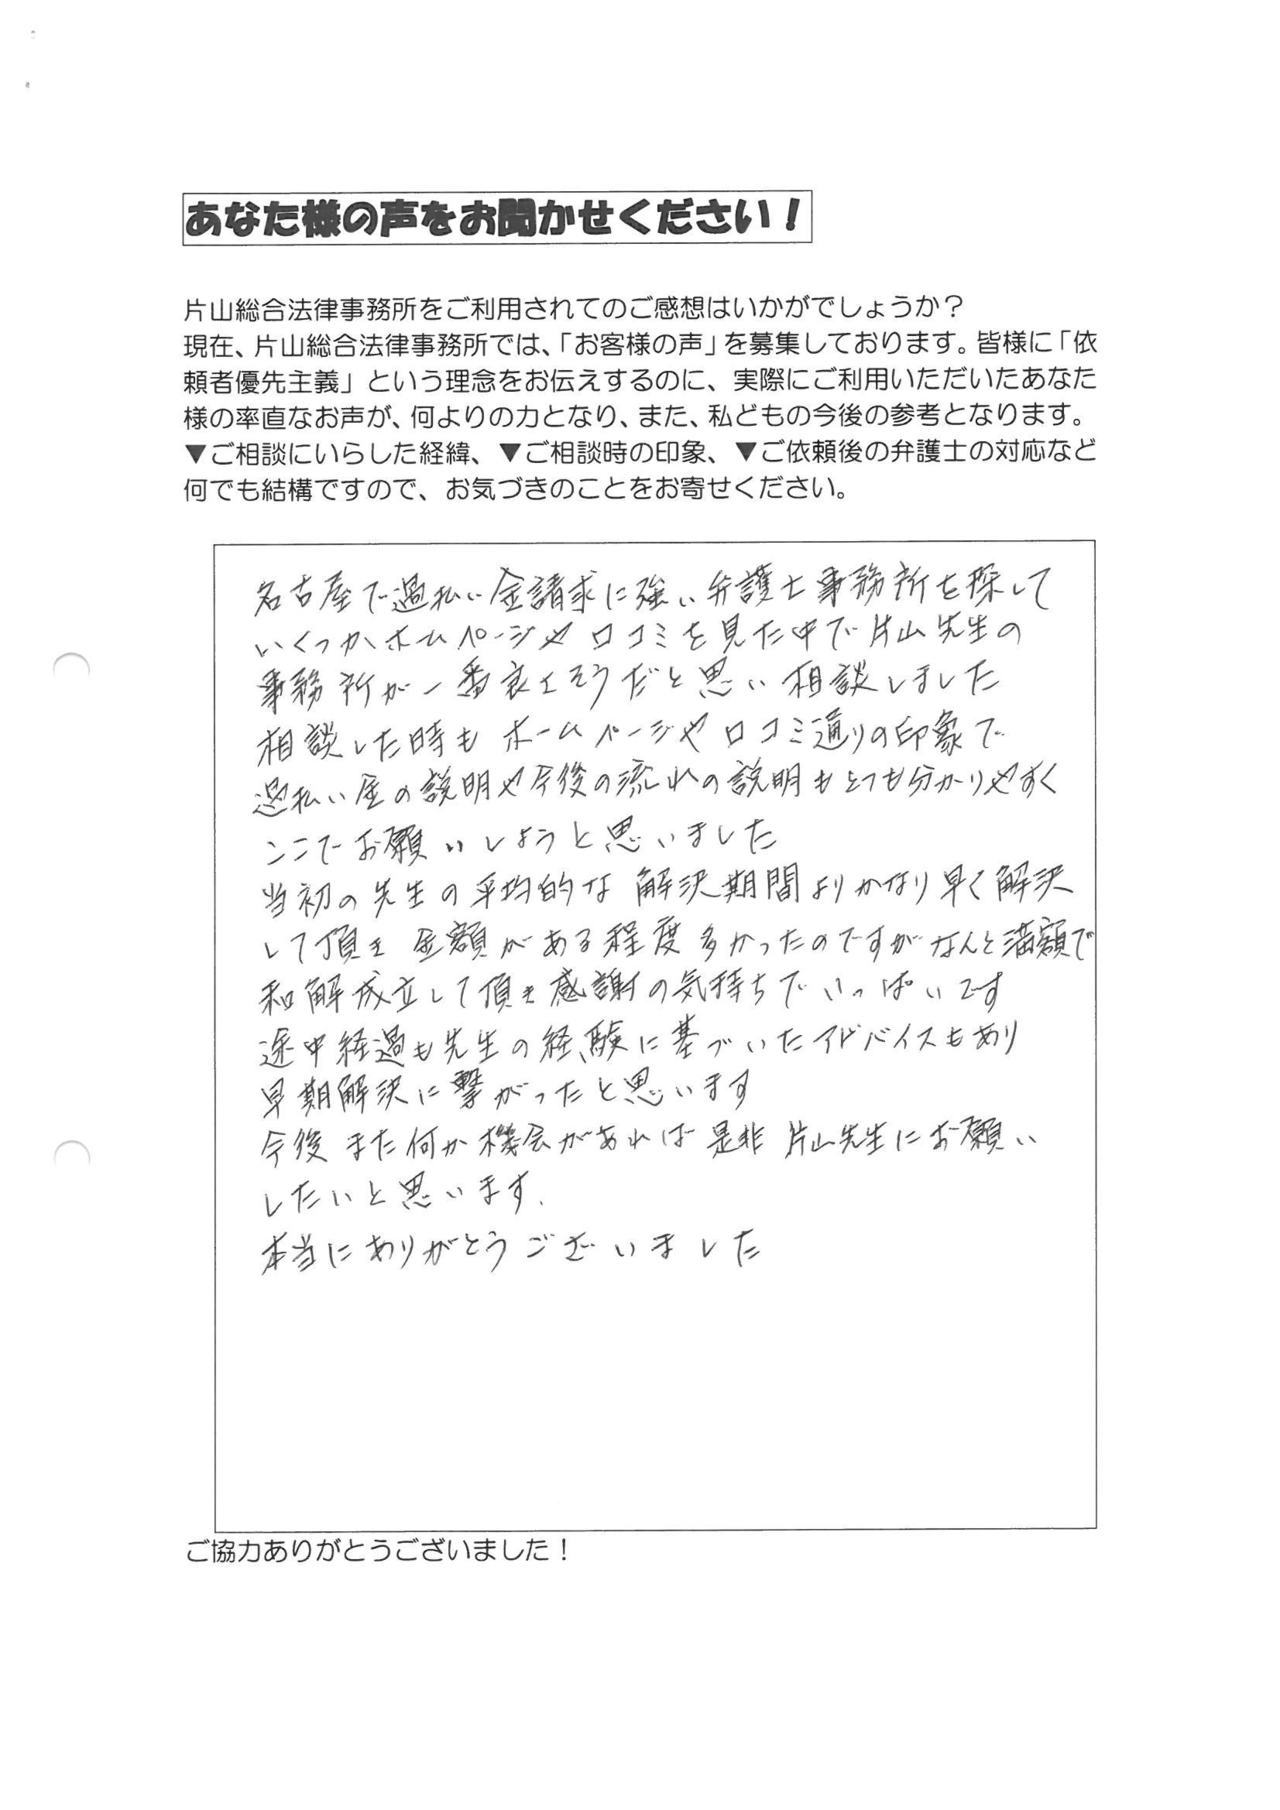 あなた様の声をお聞かせください！
片山総合法律事務所をご利用されてのご感想はいかがでしょうか？
現在、片山総合法律事務所では、「お客様の声」を募集しております。皆様に「依
頼者優先主義」という理念をお伝えするのに、実際にご利用いただいたあなた
様の率直なお声が、何よりの力となり、また、私どもの今後の参考となります。
▼ご相談にいらした経緯、▼ご相談時の印象、▼ご依頼後の弁護士の対応など
何でも結構ですので、お気づきのことをお寄せください。
名古屋で過払い金請求に強い弁護士事務所を探して
いくつかホームページや口コミを見た中で片山先生の
事務所が一番良くそうだと思い相談しました
相談した時もホームページや口コミ通りの印象で
過払い金の説明や今後の流れの説明もとても分かりやすく
ここでお願いしようと思いました
当初の先生の平均的な解決期間よりかなり早く解決
して頂き 金額がある程度多かったのですがなんと満額で
和解成立して頂き感謝の気持ちでいっぱいです
途中経過も先生の経験に基づいたアドバイスもあり
早期解決に繋がったと思います
今後また何か機会があれば是非片山先生にお願い
したいと思います.
本当にありがとうございました
ご協力ありがとうございました！